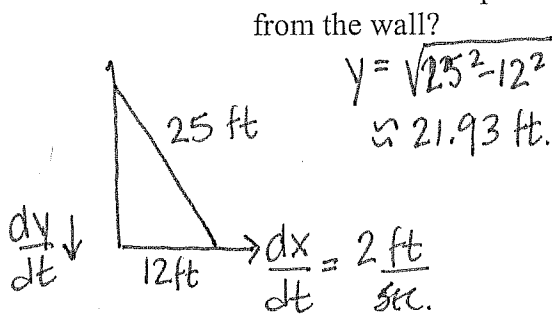 from the wall?
y = √25²-12²
≈ 21.93 ft.
25 ft
dy/dt ↓
12ft
dx/dt = 2 ft/sec.